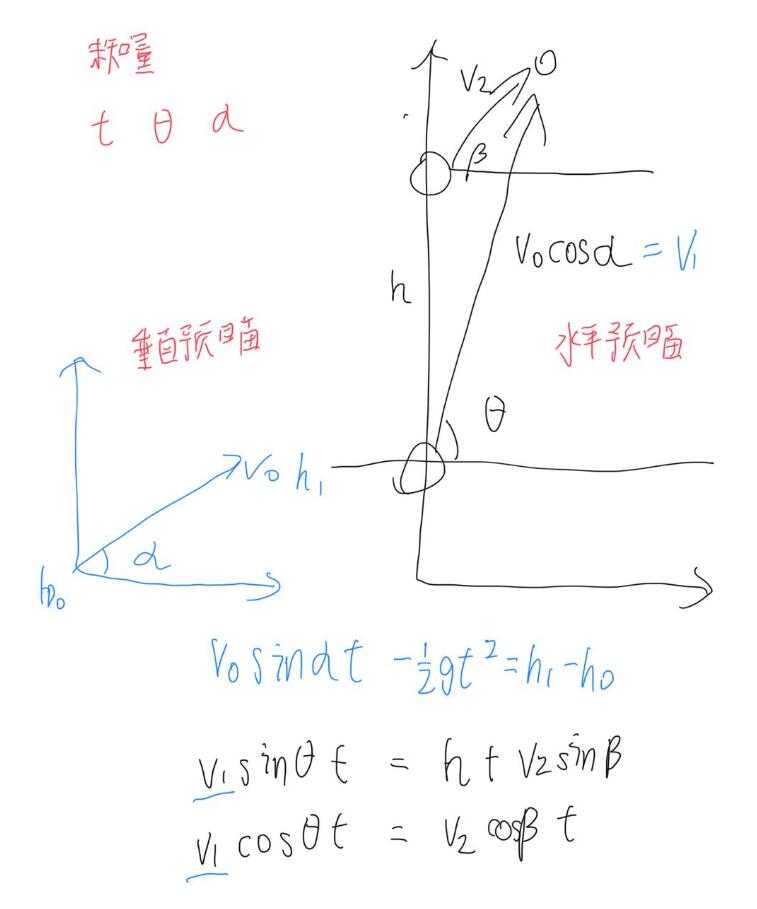 未知量
t θ α
V2
β
h
V0cosα = V1
垂直预瞄
水平预瞄
θ
V0 h1
α
h0
V0sinαt -1/2gt²=h1-h0
V1sinθt = h+V2sinβ
V1cosθt = V2cosβt